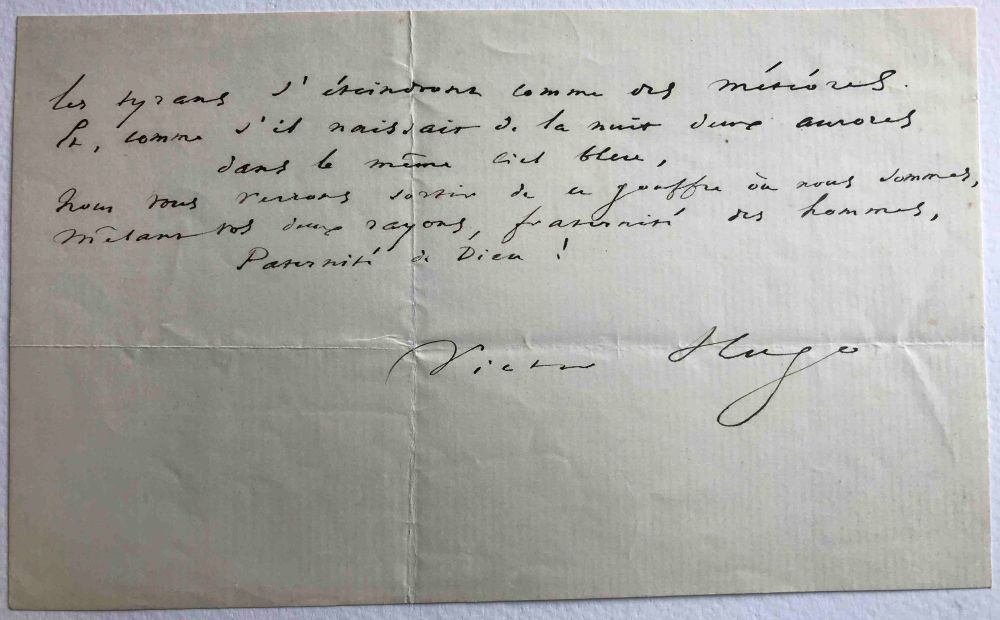 les tyrans s'éteindront comme des météores.
Et, comme s'il naissait de la nuit deux aurores
dans le même ciel bleu,
Nous vous verrons sortir de ce gouffre où nous sommes,
Mêlant vos deux rayons, fraternité des hommes,
Paternité de Dieu !
Victor Hugo